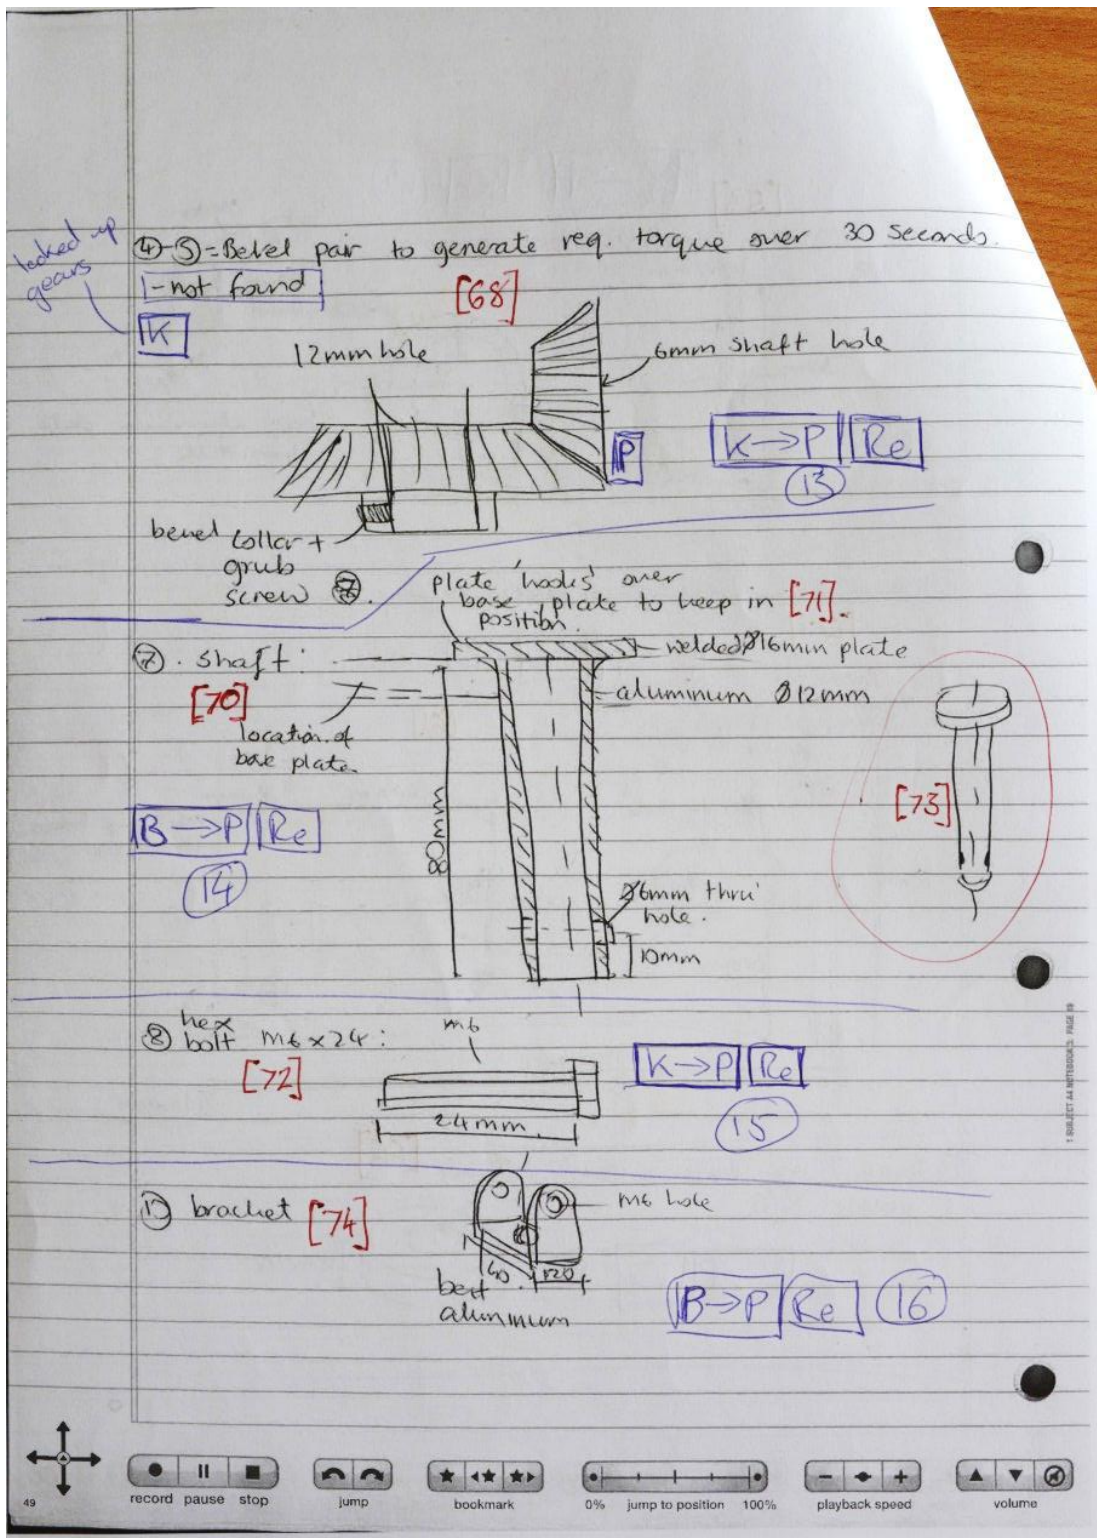 looked up
gears
④-⑤ = Bevel pair to generate req. torque over 30 seconds.
- not found
[68]
K
12mm hole
6mm shaft hole
P
K→P Re
13
bevel collar +
grub
screw
plate 'hooks' over
base plate to keep in [71].
position.
⑦. shaft:
welded Ø16mm plate
[70]
aluminum Ø12mm
location of
base plate.
[73]
B→P Re
14
80mm
Ø6mm thru'
hole.
10mm
⑧ hex
bolt M6 x 24:
M6
[72]
K→P Re
24mm
15
bracket [74]
M6 hole
40
120
bent
aluminum
B→P Re 16
1 SUBJECT A4 NOTEBOOK 3: PAGE 49
record pause stop
jump
bookmark
0% jump to position 100%
playback speed
volume
49